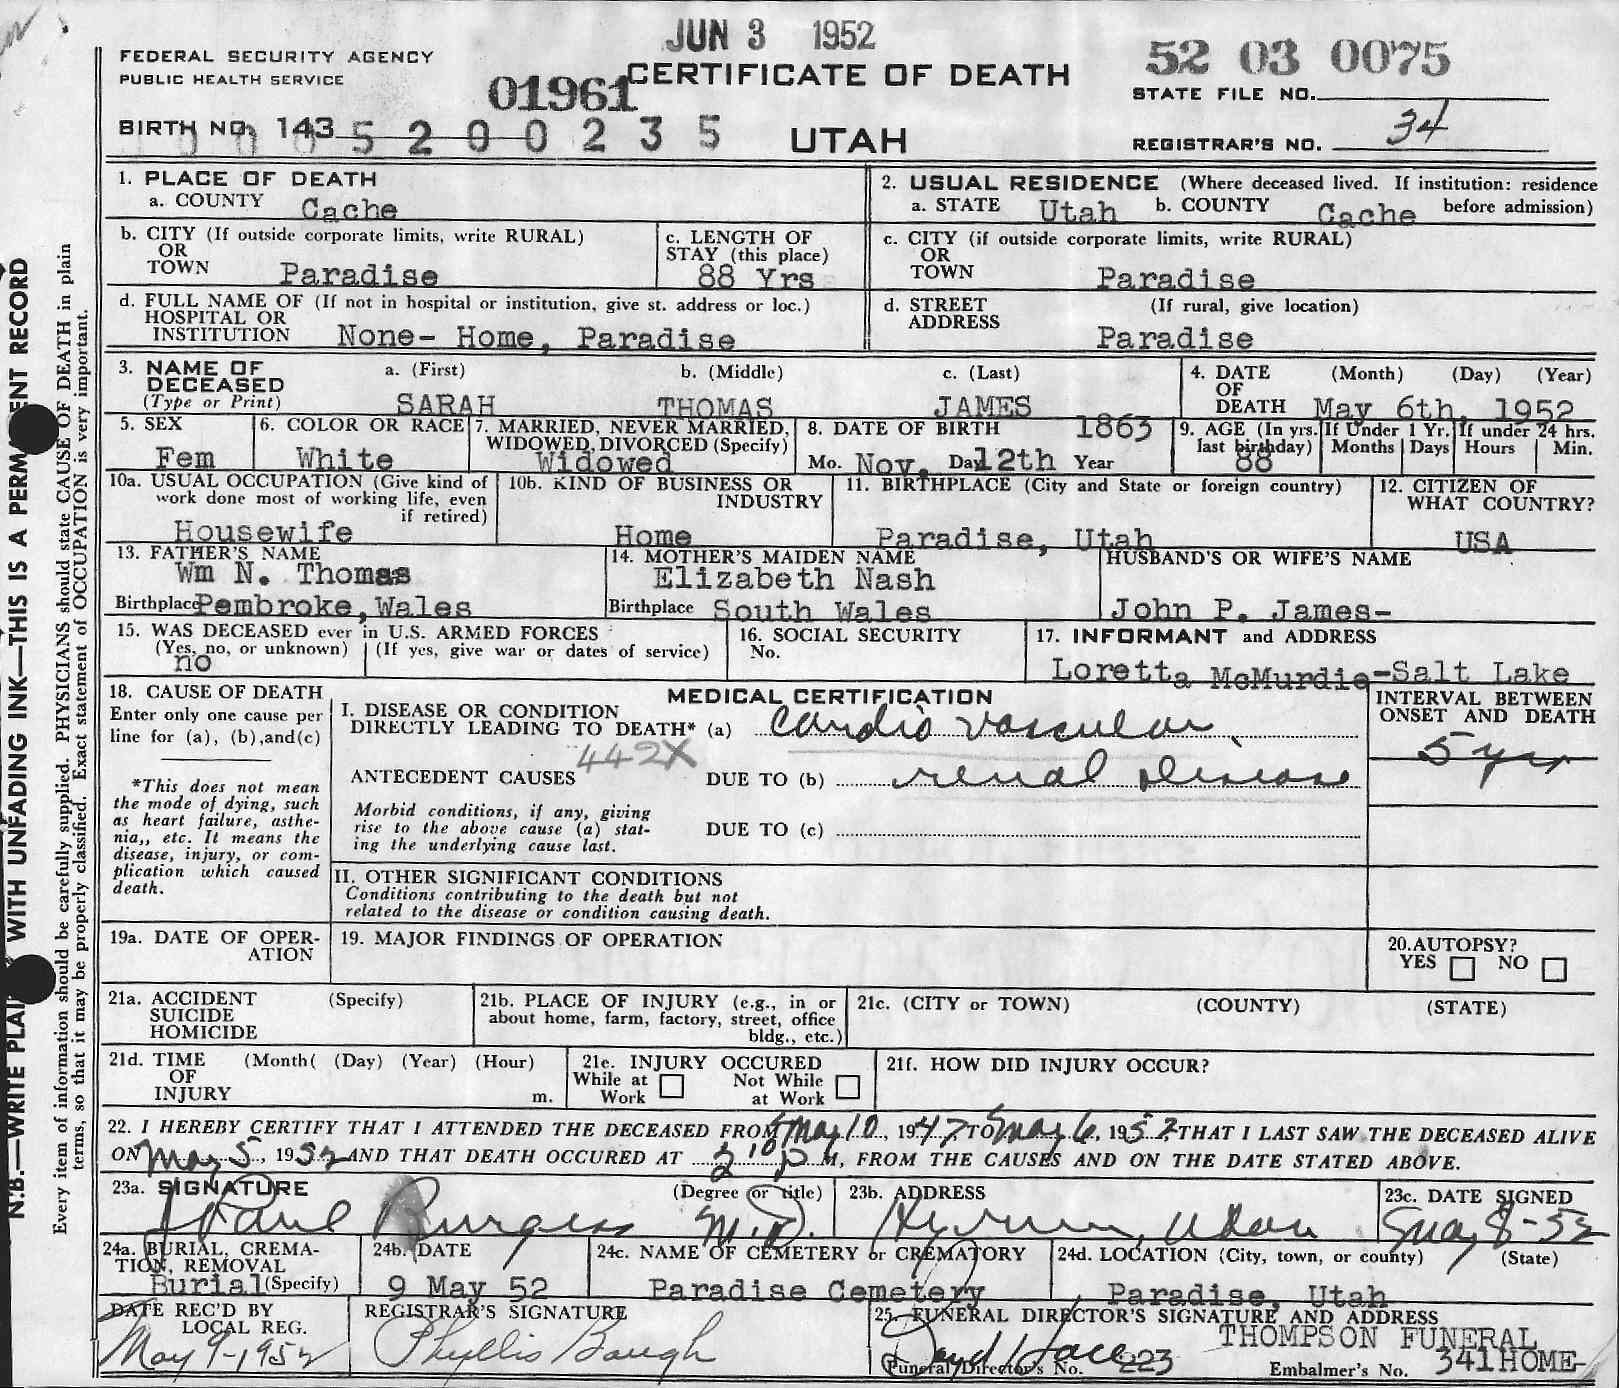 JUN 3 1952
FEDERAL SECURITY AGENCY
PUBLIC HEALTH SERVICE
01961 CERTIFICATE OF DEATH
52 03 0075
STATE FILE NO.
BIRTH NO. 143 5 2 0 0 2 3 5
UTAH
REGISTRAR'S NO. 34
1. PLACE OF DEATH
a. COUNTY Cache
2. USUAL RESIDENCE (Where deceased lived. If institution: residence before admission)
a. STATE Utah b. COUNTY Cache
b. CITY (If outside corporate limits, write RURAL)
OR
TOWN Paradise
c. LENGTH OF
STAY (this place)
88 Yrs
c. CITY (if outside corporate limits, write RURAL)
OR
TOWN Paradise
d. FULL NAME OF (If not in hospital or institution, give st. address or loc.)
HOSPITAL OR
INSTITUTION None- Home, Paradise
d. STREET (If rural, give location)
ADDRESS Paradise
3. NAME OF DECEASED (Type or Print)
a. (First) b. (Middle) c. (Last)
SARAH THOMAS JAMES
4. DATE OF DEATH (Month) (Day) (Year)
May 6th, 1952
5. SEX
Fem
6. COLOR OR RACE
White
7. MARRIED, NEVER MARRIED,
WIDOWED, DIVORCED (Specify)
Widowed
8. DATE OF BIRTH 1863
Mo. Nov. Da 12th Year
9. AGE (In yrs. last birthday)
88
If Under 1 Yr.
Months Days
If under 24 hrs.
Hours Min.
10a. USUAL OCCUPATION (Give kind of
work done most of working life, even
if retired)
Housewife
10b. KIND OF BUSINESS OR
INDUSTRY
Home
11. BIRTHPLACE (City and State or foreign country)
Paradise, Utah
12. CITIZEN OF
WHAT COUNTRY?
USA
13. FATHER'S NAME
Wm N. Thomas
Birthplace Pembroke, Wales
14. MOTHER'S MAIDEN NAME
Elizabeth Nash
Birthplace South Wales
HUSBAND'S OR WIFE'S NAME
John P. James-
15. WAS DECEASED ever in U.S. ARMED FORCES
(Yes, no, or unknown) (If yes, give war or dates of service)
no
16. SOCIAL SECURITY
No.
17. INFORMANT and ADDRESS
Loretta McMurdie-Salt Lake
18. CAUSE OF DEATH
Enter only one cause per
line for (a), (b), and(c)
*This does not mean
the mode of dying, such
as heart failure, asthe-
nia,, etc. It means the
disease, injury, or com-
plication which caused
death.
MEDICAL CERTIFICATION
I. DISEASE OR CONDITION
DIRECTLY LEADING TO DEATH* (a) Cardio vascular
442X
ANTECEDENT CAUSES DUE TO (b) renal disease
Morbid conditions, if any, giving
rise to the above cause (a) stat-
ing the underlying cause last.
DUE TO (c)
INTERVAL BETWEEN
ONSET AND DEATH
5 yrs
II. OTHER SIGNIFICANT CONDITIONS
Conditions contributing to the death but not
related to the disease or condition causing death.
19a. DATE OF OPER-
ATION
19. MAJOR FINDINGS OF OPERATION
20. AUTOPSY?
YES NO
21a. ACCIDENT (Specify)
SUICIDE
HOMICIDE
21b. PLACE OF INJURY (e.g., in or
about home, farm, factory, street, office
bldg., etc.)
21c. (CITY or TOWN) (COUNTY) (STATE)
21d. TIME (Month( (Day) (Year) (Hour)
OF
INJURY m.
21e. INJURY OCCURED
While at Work Not While at Work
21f. HOW DID INJURY OCCUR?
22. I HEREBY CERTIFY THAT I ATTENDED THE DECEASED FROM May 10, 1947, TO May 6, 1952, THAT I LAST SAW THE DECEASED ALIVE
ON May 5, 1952 AND THAT DEATH OCCURED AT 2:10 P M, FROM THE CAUSES AND ON THE DATE STATED ABOVE.
23a. SIGNATURE (Degree or title)
Paul Burgess M.D.
23b. ADDRESS
Hyrum, Utah
23c. DATE SIGNED
May 8-52
24a. BURIAL, CREMA-
TION, REMOVAL
Burial (Specify)
24b. DATE
9 May 52
24c. NAME OF CEMETERY or CREMATORY
Paradise Cemetery
24d. LOCATION (City, town, or county) (State)
Paradise, Utah
DATE REC'D BY
LOCAL REG.
May 9-1952
REGISTRAR'S SIGNATURE
Phyllis Baugh
25. FUNERAL DIRECTOR'S SIGNATURE AND ADDRESS
THOMPSON FUNERAL
(Funeral Director's No. 223
Embalmer's No. 341 HOME-
N.B.—WRITE PLAI WITH UNFADING INK—THIS IS A PERM ENT RECORD
Every item of information should be carefully supplied. PHYSICIANS should state CAUSE OF DEATH in plain
terms, so that it may be properly classified. Exact statement of OCCUPATION is very important.